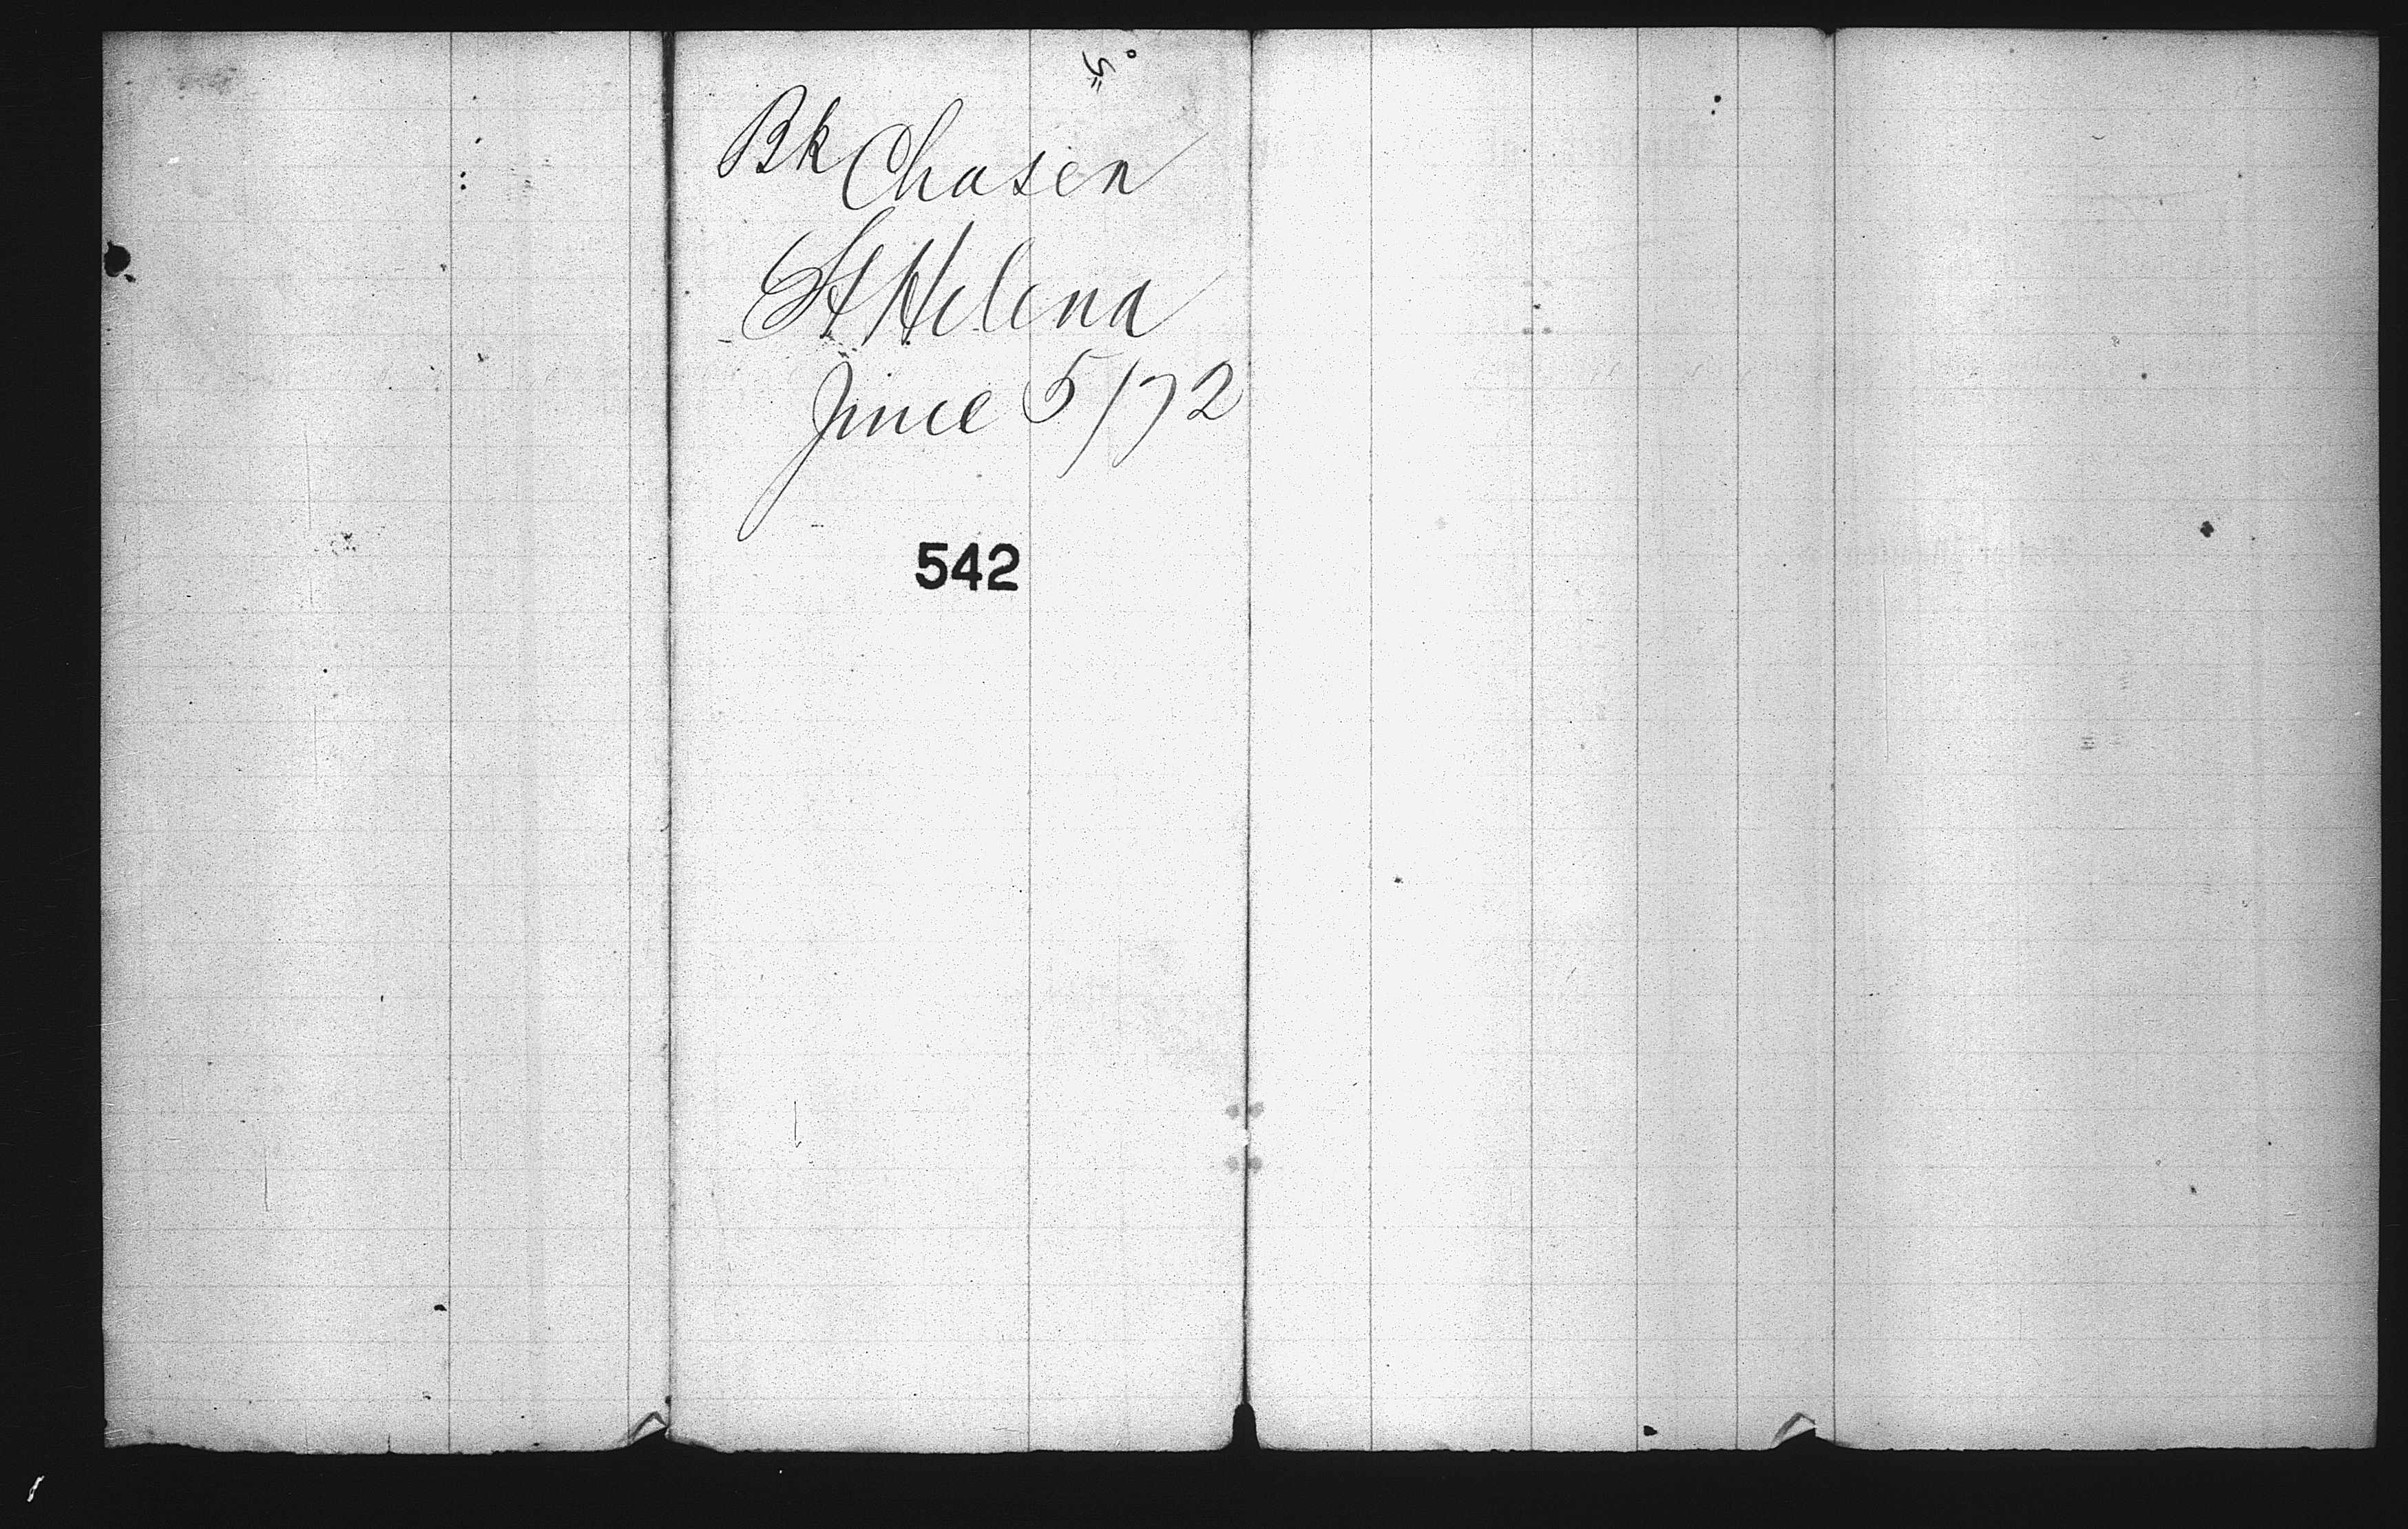 Bk Chasen
St Helena
June 5/72
542